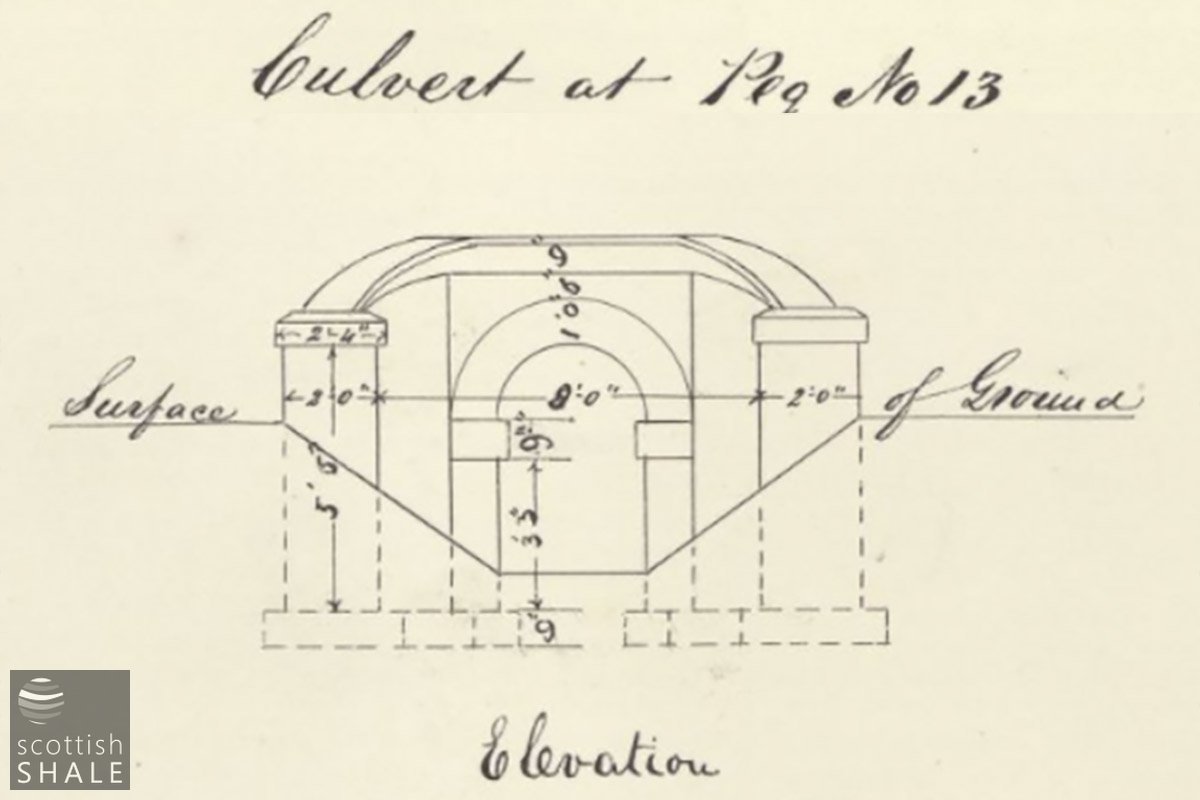 Culvert at Peg No 13
9"
1'0"6"
2'-4"
Surface
2'-0"
8'-0"
2'-0"
of Ground
9"
5' 6"
3' 3"
9"
Elevation
scottish
SHALE